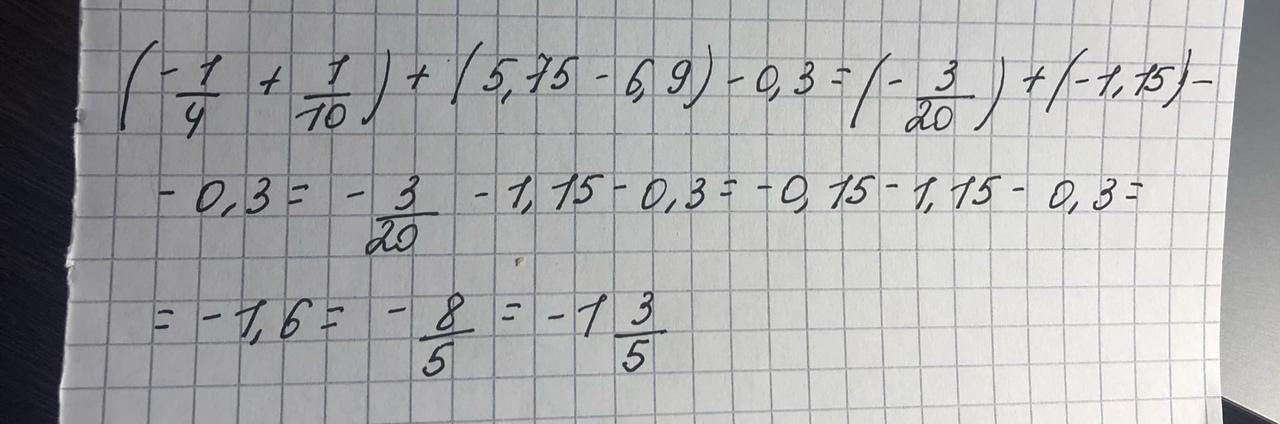 (-1/4 + 1/10) + (5,75 - 6,9) - 0,3 = (- 3/20) + (-1,15) -
- 0,3 = - 3/20 - 1,15 - 0,3 = -0,15 - 1,15 - 0,3 =
= -1,6 = - 8/5 = -1 3/5